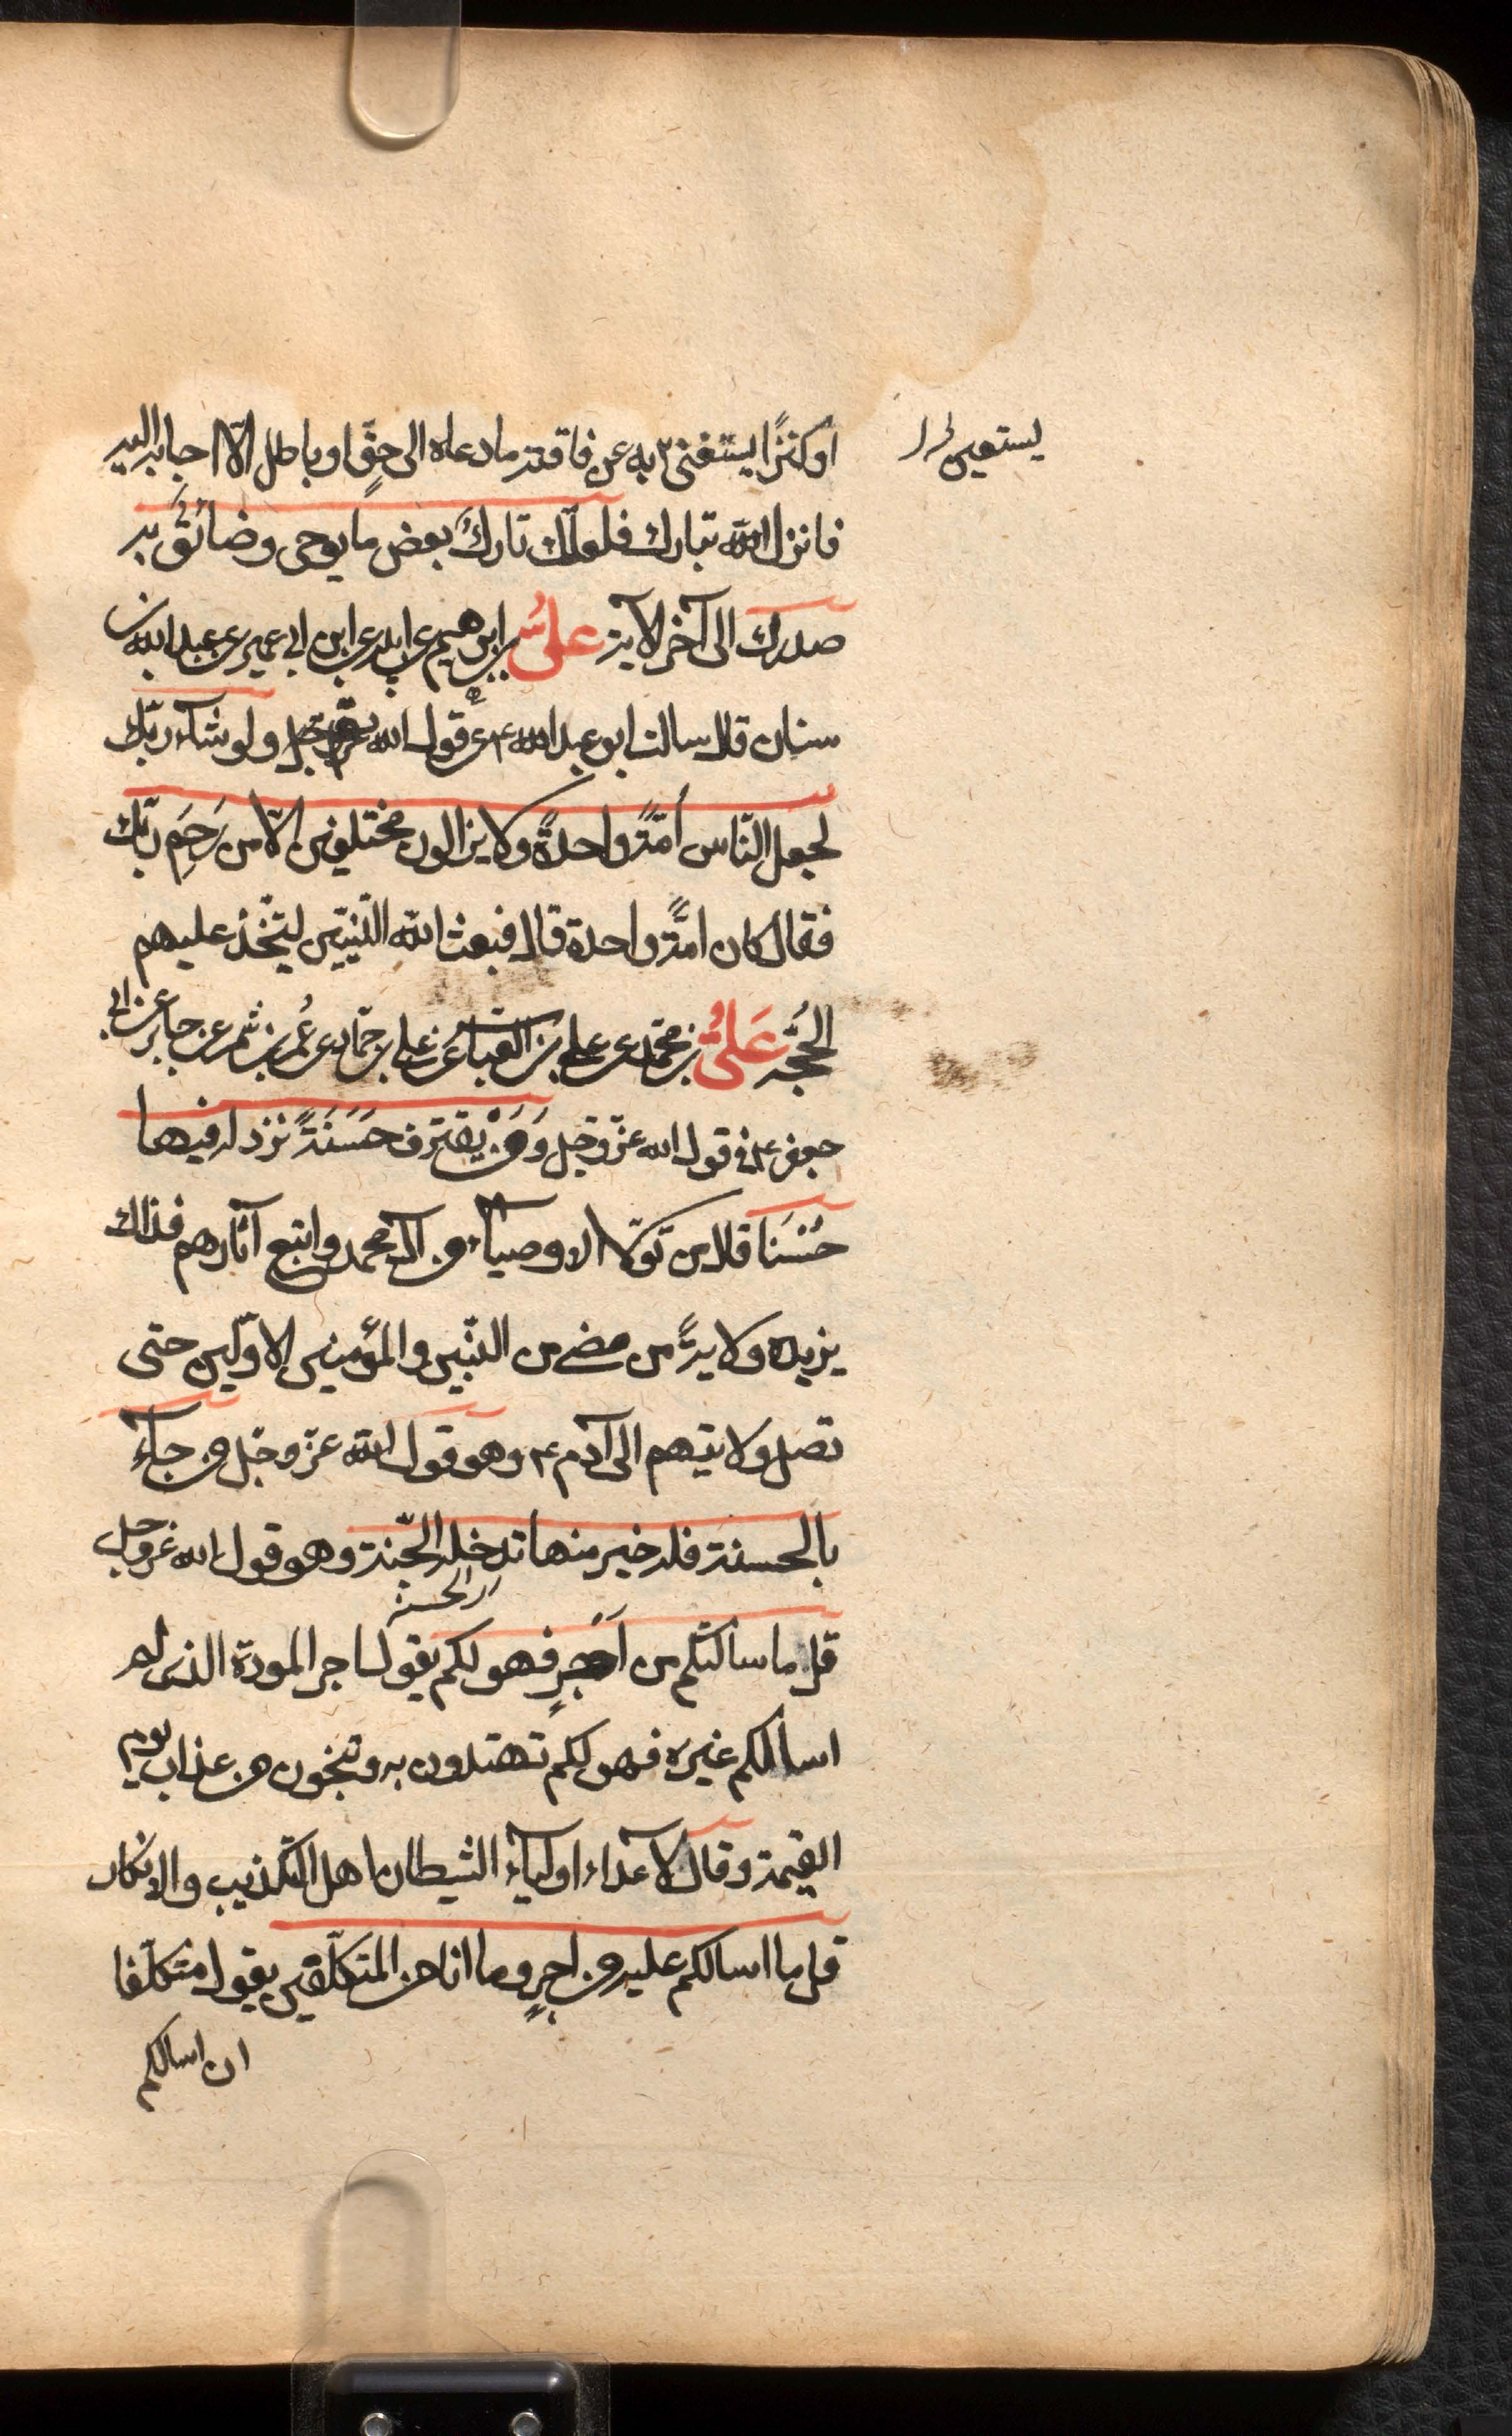 او كنزًا يستغنى به عن فاقته ما دعاه الى حقٍّ او باطل الّا اجابه اليه
يستعين
فانزل الله تبارك فلعلّك تاركٌ بعض ما يوحى وضائقٌ به
صدرك الى آخر الآية علىُّ بن ابرهيم عن ابيه عن ابن ابى عمير عن عبد الله بن
سنان قال سالت ابو عبد الله ع عن قول الله عز وجل ولو شآء ربّك
لجعل النّاس اُمّةً واحدةً ولا يزالون مختلفين الّا من رَحِمَ ربّك
فقال كان امّةً واحدة قال فبعث الله النّبيّين ليتّخذ عليهم
الحُجّه عَلىُّ بن محمّد عن على بن العباس عن على بن حمّاد عن عُمر بن شمر عن جابر عن ابى
جعفر ع فى قول الله عزّ وجّل وَمَنْ يقترف حَسَنَةً نزد له فيها
حُسْنَا قال من تولّا الاوصيآء من آل محمد واتبع آثارهم فذاك
يزيده ولايةً من مضى من النبّيين والمؤمنين الاوّلين حتى
تصل ولايتهم الى آدم ع وهو قول الله عزّ وجّل من جآء
بالحسنة فله خير منها تدخله الجّنة وهو قول الله عز وجل
الحسنة
قل ما سالتكم من اجرٍ فهو لكم يقول اجر المودة الذى لم
اسالكم غيره فهو لكم تهتدون به وتنجون من عذاب يوم
القيمة وقال لاعداء اوليآء الشيطان اهل التّكذيب والانكار
قل ما اسالكم عليه من اجرٍ وما انا من المتكلّفين يقول متكلّفا
ان اسالكم